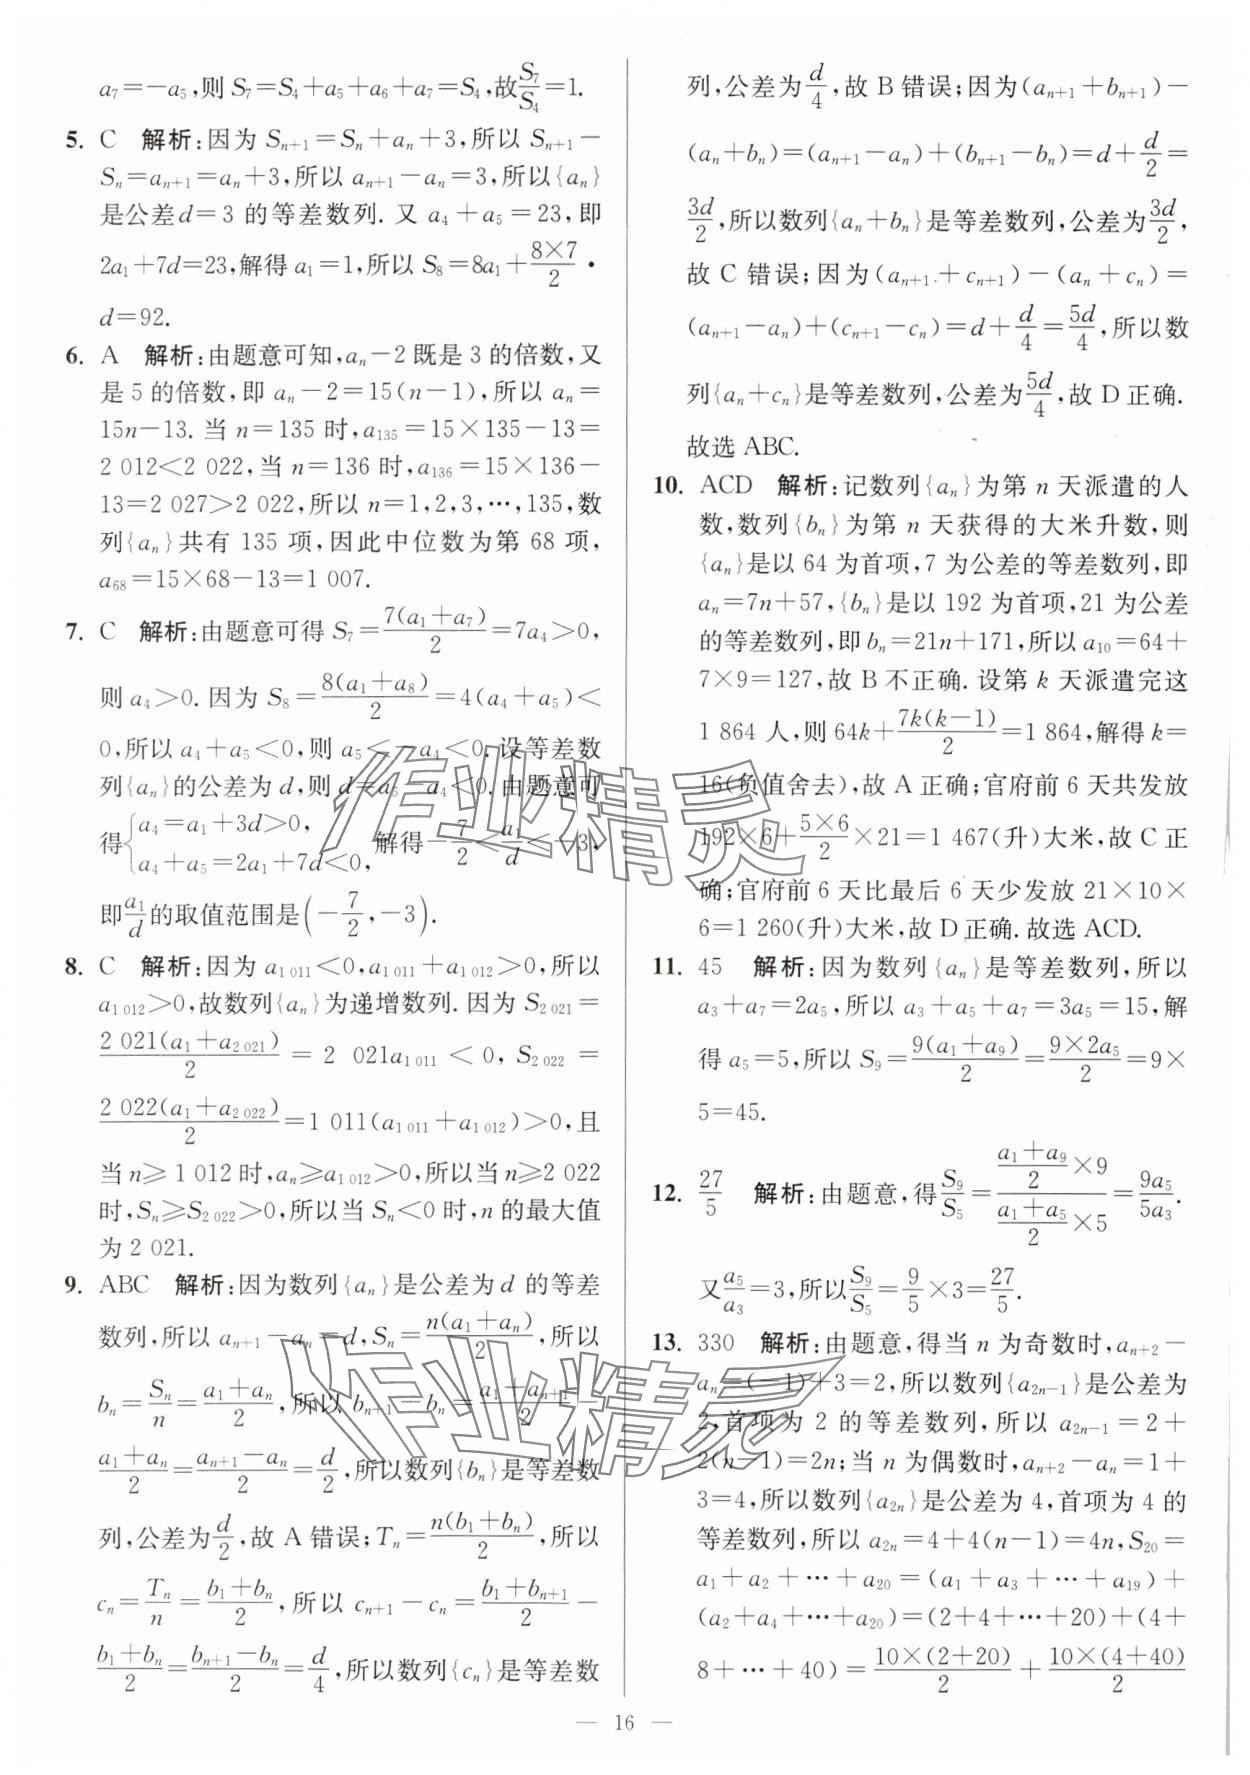 a₇=-a₅,则 S₇=S₄+a₅+a₆+a₇=S₄,故S₇/S₄=1.
5. C 解析:因为 Sₙ₊₁=Sₙ+aₙ+3,所以 Sₙ₊₁-
Sₙ=aₙ₊₁=aₙ+3,所以 aₙ₊₁-aₙ=3,所以{aₙ}
是公差d=3 的等差数列. 又 a₄+a₅=23,即
2a₁+7d=23,解得 a₁=1,所以 S₈=8a₁+(8×7)/2·
d=92.
6. A 解析:由题意可知,aₙ-2既是 3 的倍数,又
是 5 的倍数,即 aₙ-2=15(n-1),所以 aₙ=
15n-13. 当 n=135 时,a₁₃₅=15×135-13=
2 012<2 022,当 n=136 时,a₁₃₆=15×136-
13=2 027>2 022,所以 n=1,2,3,…,135,数
列{aₙ}共有 135 项,因此中位数为第 68 项,
a₆₈=15×68-13=1 007.
7. C 解析:由题意可得 S₇=7(a₁+a₇)/2=7a₄>0,
则 a₄>0. 因为 S₈=8(a₁+a₈)/2=4(a₄+a₅)<
0,所以 a₄+a₅<0,则 a₅<-a₄<0. 设等差数
列{aₙ}的公差为 d,则 d=a₅-a₄<0. 由题意可
得{a₄=a₁+3d>0, a₄+a₅=2a₁+7d<0, 解得-7/2<a₁/d<-3.
即a₁/d的取值范围是(-7/2,-3).
8. C 解析:因为 a₁ ₀₁₁<0,a₁ ₀₁₁+a₁ ₀₁₂>0,所以
a₁ ₀₁₂>0,故数列{aₙ}为递增数列. 因为 S₂ ₀₂₁=
2 021(a₁+a₂ ₀₂₁)/2 = 2 021a₁ ₀₁₁ < 0, S₂ ₀₂₂ =
2 022(a₁+a₂ ₀₂₂)/2=1 011(a₁ ₀₁₁+a₁ ₀₁₂)>0,且
当 n≥1 012 时,aₙ≥a₁ ₀₁₂>0,所以当 n≥2 022
时,Sₙ≥S₂ ₀₂₂>0,所以当 Sₙ<0 时,n 的最大值
为 2 021.
9. ABC 解析:因为数列{aₙ}是公差为 d 的等差
数列,所以 aₙ₊₁-aₙ=d,Sₙ=n(a₁+aₙ)/2,所以
bₙ=Sₙ/n=(a₁+aₙ)/2,所以 bₙ₊₁-bₙ=(a₁+aₙ₊₁)/2-
(a₁+aₙ)/2=(aₙ₊₁-aₙ)/2=d/2,所以数列{bₙ}是等差数
列,公差为d/2,故 A 错误;Tₙ=n(b₁+bₙ)/2,所以
cₙ=Tₙ/n=(b₁+bₙ)/2,所以 cₙ₊₁-cₙ=(b₁+bₙ₊₁)/2-
(b₁+bₙ)/2=(bₙ₊₁-bₙ)/2=d/4,所以数列{cₙ}是等差数
列,公差为d/4,故 B 错误;因为(aₙ₊₁+bₙ₊₁)-
(aₙ+bₙ)=(aₙ₊₁-aₙ)+(bₙ₊₁-bₙ)=d+d/2=
3d/2,所以数列{aₙ+bₙ}是等差数列,公差为3d/2,
故 C 错误;因为(aₙ₊₁+cₙ₊₁)-(aₙ+cₙ)=
(aₙ₊₁-aₙ)+(cₙ₊₁-cₙ)=d+d/4=5d/4,所以数
列{aₙ+cₙ}是等差数列,公差为5d/4,故 D 正确.
故选 ABC.
10. ACD 解析:记数列{aₙ}为第 n 天派遣的人
数,数列{bₙ}为第 n 天获得的大米升数,则
{aₙ}是以 64 为首项,7 为公差的等差数列,即
aₙ=7n+57,{bₙ}是以 192 为首项,21 为公差
的等差数列,即 bₙ=21n+171,所以 a₁₀=64+
7×9=127,故 B 不正确. 设第 k 天派遣完这
1 864 人,则 64k+7k(k-1)/2=1 864,解得 k=
16(负值舍去),故 A 正确;官府前 6 天共发放
192×6+(5×6)/2×21=1 467(升)大米,故 C 正
确;官府前 6 天比最后 6 天少发放 21×10×
6=1 260(升)大米,故 D 正确. 故选 ACD.
11. 45 解析:因为数列{aₙ}是等差数列,所以
a₃+a₇=2a₅,所以 a₃+a₅+a₇=3a₅=15,解
得 a₅=5,所以 S₉=9(a₁+a₉)/2=(9×2a₅)/2=9×
5=45.
12. 27/5 解析:由题意,得S₉/S₅=((a₁+a₉)/2×9)/((a₁+a₅)/2×5)=9a₅/5a₃.
又a₅/a₃=3,所以S₉/S₅=9/5×3=27/5.
13. 330 解析:由题意,得当 n 为奇数时,aₙ₊₂-
aₙ=(-1)+3=2,所以数列{a₂ₙ₋₁}是公差为
2,首项为 2 的等差数列,所以 a₂ₙ₋₁=2+
2(n-1)=2n;当 n 为偶数时,aₙ₊₂-aₙ=1+
3=4,所以数列{a₂ₙ}是公差为 4,首项为 4 的
等差数列,所以 a₂ₙ=4+4(n-1)=4n,S₂₀=
a₁+a₂+…+a₂₀=(a₁+a₃+…+a₁₉)+
(a₂+a₄+…+a₂₀)=(2+4+…+20)+(4+
8+…+40)=10×(2+20)/2+10×(4+40)/2
— 16 —
作业精灵
作业精灵